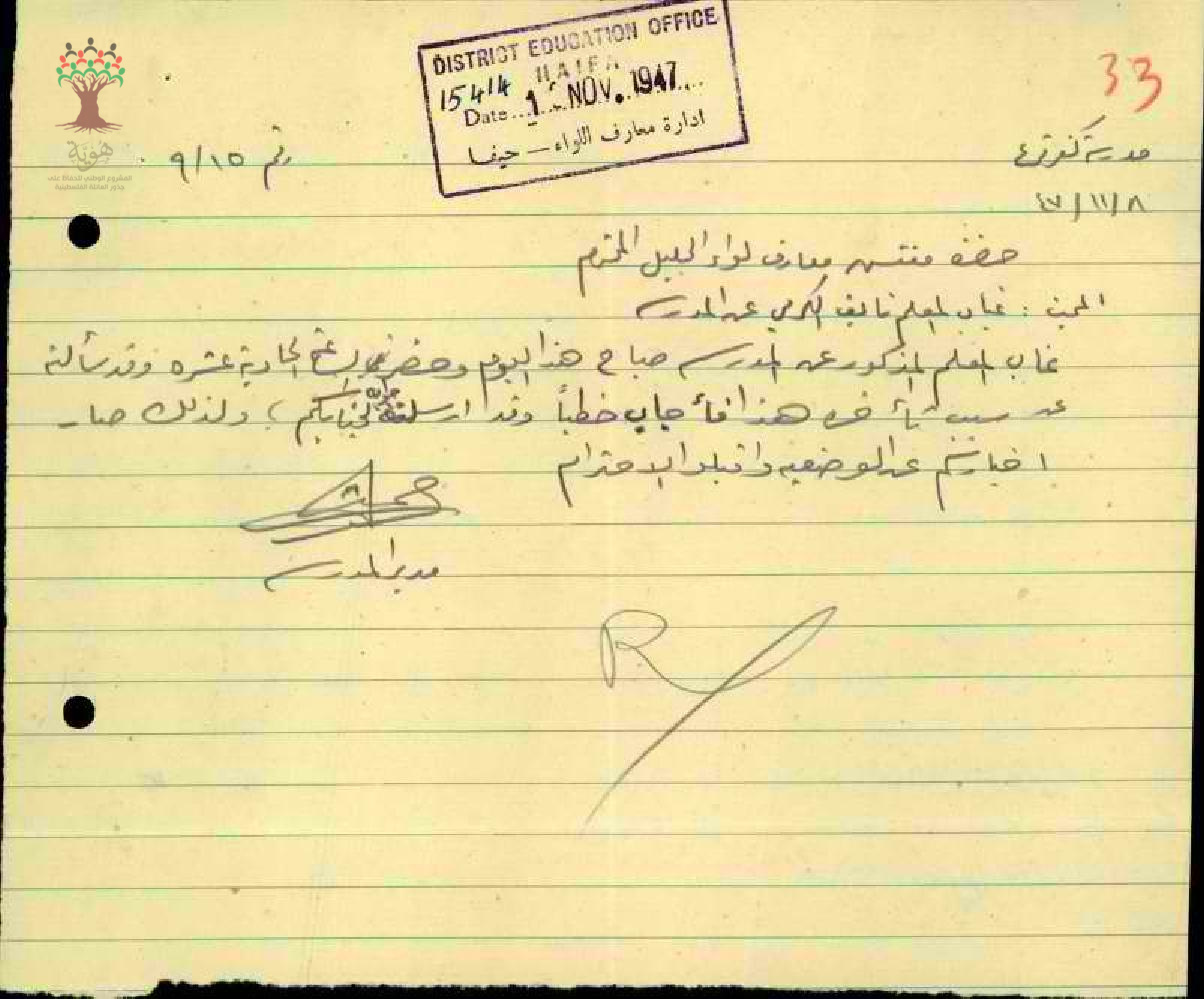 DISTRICT EDUCATION OFFICE
HAIFA
15414
Date... 1 NOV. 1947...
ادارة معارف اللواء — حيفا
33
هوية
المشروع الوطني للحفاظ على
جذور العائلة الفلسطينية
رقم ٩/١٥
مدرسة كفر
٤٧/١١/٨
حضرة مفتش معارف لواء الجليل المحترم
المبحث : غياب المعلم نايف الكرمي عن المدرسة
غاب المعلم المذكور عن المدرسة صباح هذا اليوم وحضر في الساعة الحادية عشره وقد سألته
عن سبب تأخره هذا فأجاب خطياً وقد ارسلت لجنابكم ولذلك صار
اخباركم عن الوضعيه واقبلوا الاحترام
مدير المدرسة
R